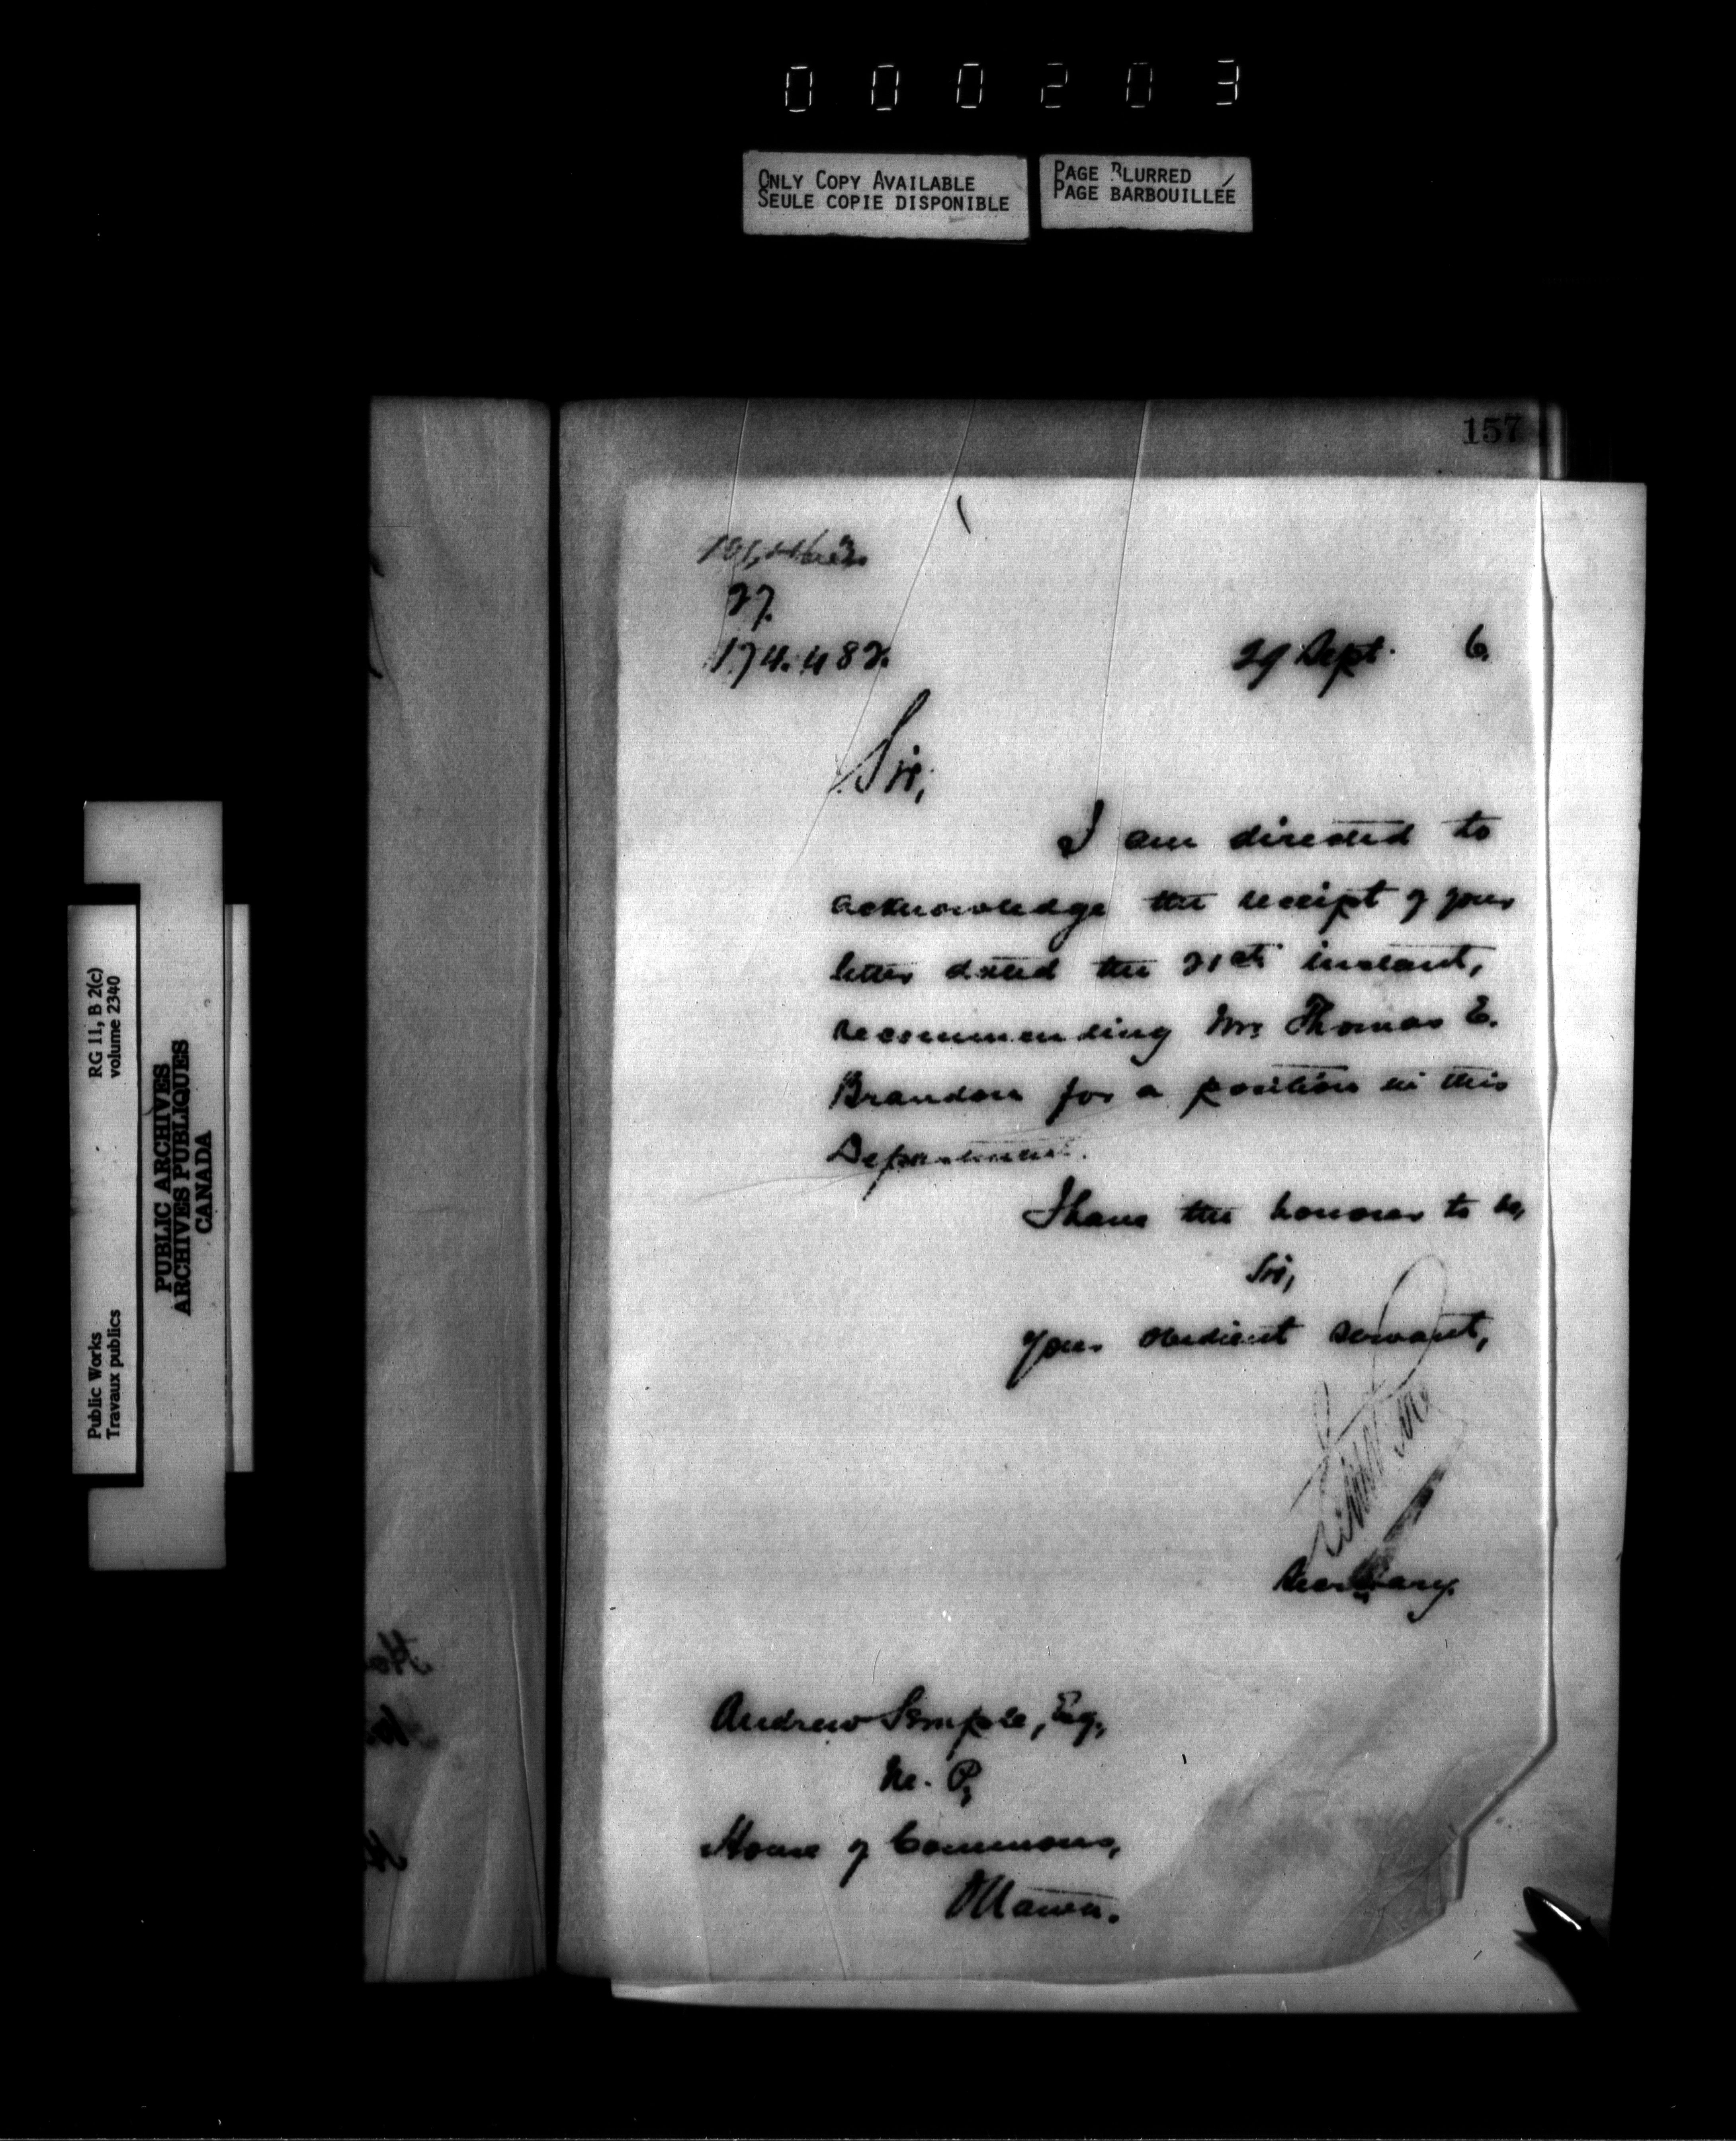 000203
ONLY COPY AVAILABLE
SEULE COPIE DISPONIBLE
PAGE BLURRED
PAGE BARBOUILLÉE
157
27.
174.482.
29 Sept. 6.
Sir,
I am directed to
acknowledge the receipt of your
letter dated the 21st instant,
recommending Mr. Thomas E.
Brandon for a position in this
Department.
I have the honour to be,
Sir,
Your obedient servant,
Secretary.
Andrew Semple, Esq.,
M. P.,
House of Commons,
Ottawa.
RG 11, B 2(c)
volume 2340
Public Works
Travaux publics
PUBLIC ARCHIVES
ARCHIVES PUBLIQUES
CANADA